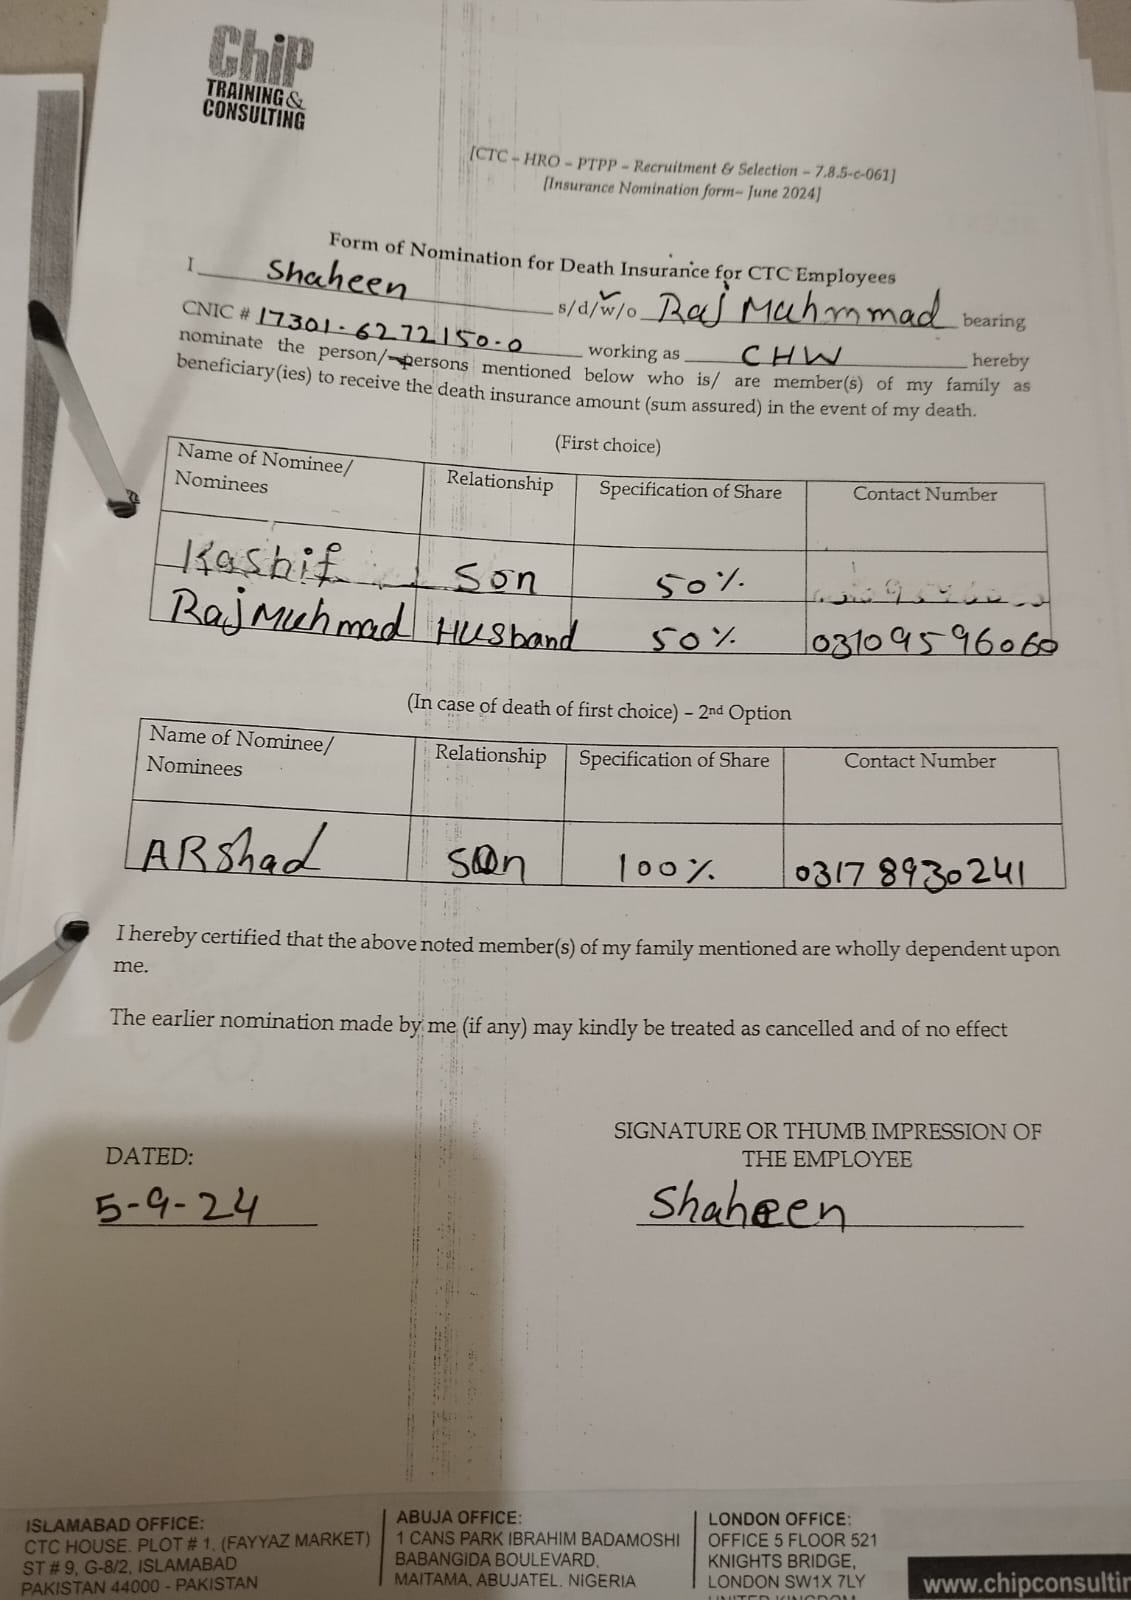 ChiP
TRAINING &
CONSULTING
[CTC – HRO – PTPP – Recruitment & Selection – 7.8.5-c-061]
[Insurance Nomination form– June 2024]
Form of Nomination for Death Insurance for CTC Employees
I Shaheen s/d/w/o Raj Muhmmad bearing
CNIC # 17301-6272150-0 working as CHW hereby
nominate the person/persons mentioned below who is/ are member(s) of my family as
beneficiary(ies) to receive the death insurance amount (sum assured) in the event of my death.
(First choice)
Name of Nominee/ Relationship Specification of Share Contact Number
Nominees
Kashif Son 50%
Raj Muhmad Husband 50% 03109596060
(In case of death of first choice) – 2nd Option
Name of Nominee/ Relationship Specification of Share Contact Number
Nominees
ARShad Son 100% 03178930241
I hereby certified that the above noted member(s) of my family mentioned are wholly dependent upon
me.
The earlier nomination made by me (if any) may kindly be treated as cancelled and of no effect
SIGNATURE OR THUMB IMPRESSION OF
DATED: THE EMPLOYEE
5-9-24 Shaheen
ISLAMABAD OFFICE: ABUJA OFFICE: LONDON OFFICE:
CTC HOUSE. PLOT # 1, (FAYYAZ MARKET) 1 CANS PARK IBRAHIM BADAMOSHI OFFICE 5 FLOOR 521
ST # 9, G-8/2, ISLAMABAD BABANGIDA BOULEVARD, KNIGHTS BRIDGE,
PAKISTAN 44000 - PAKISTAN MAITAMA, ABUJATEL. NIGERIA LONDON SW1X 7LY
www.chipconsultin